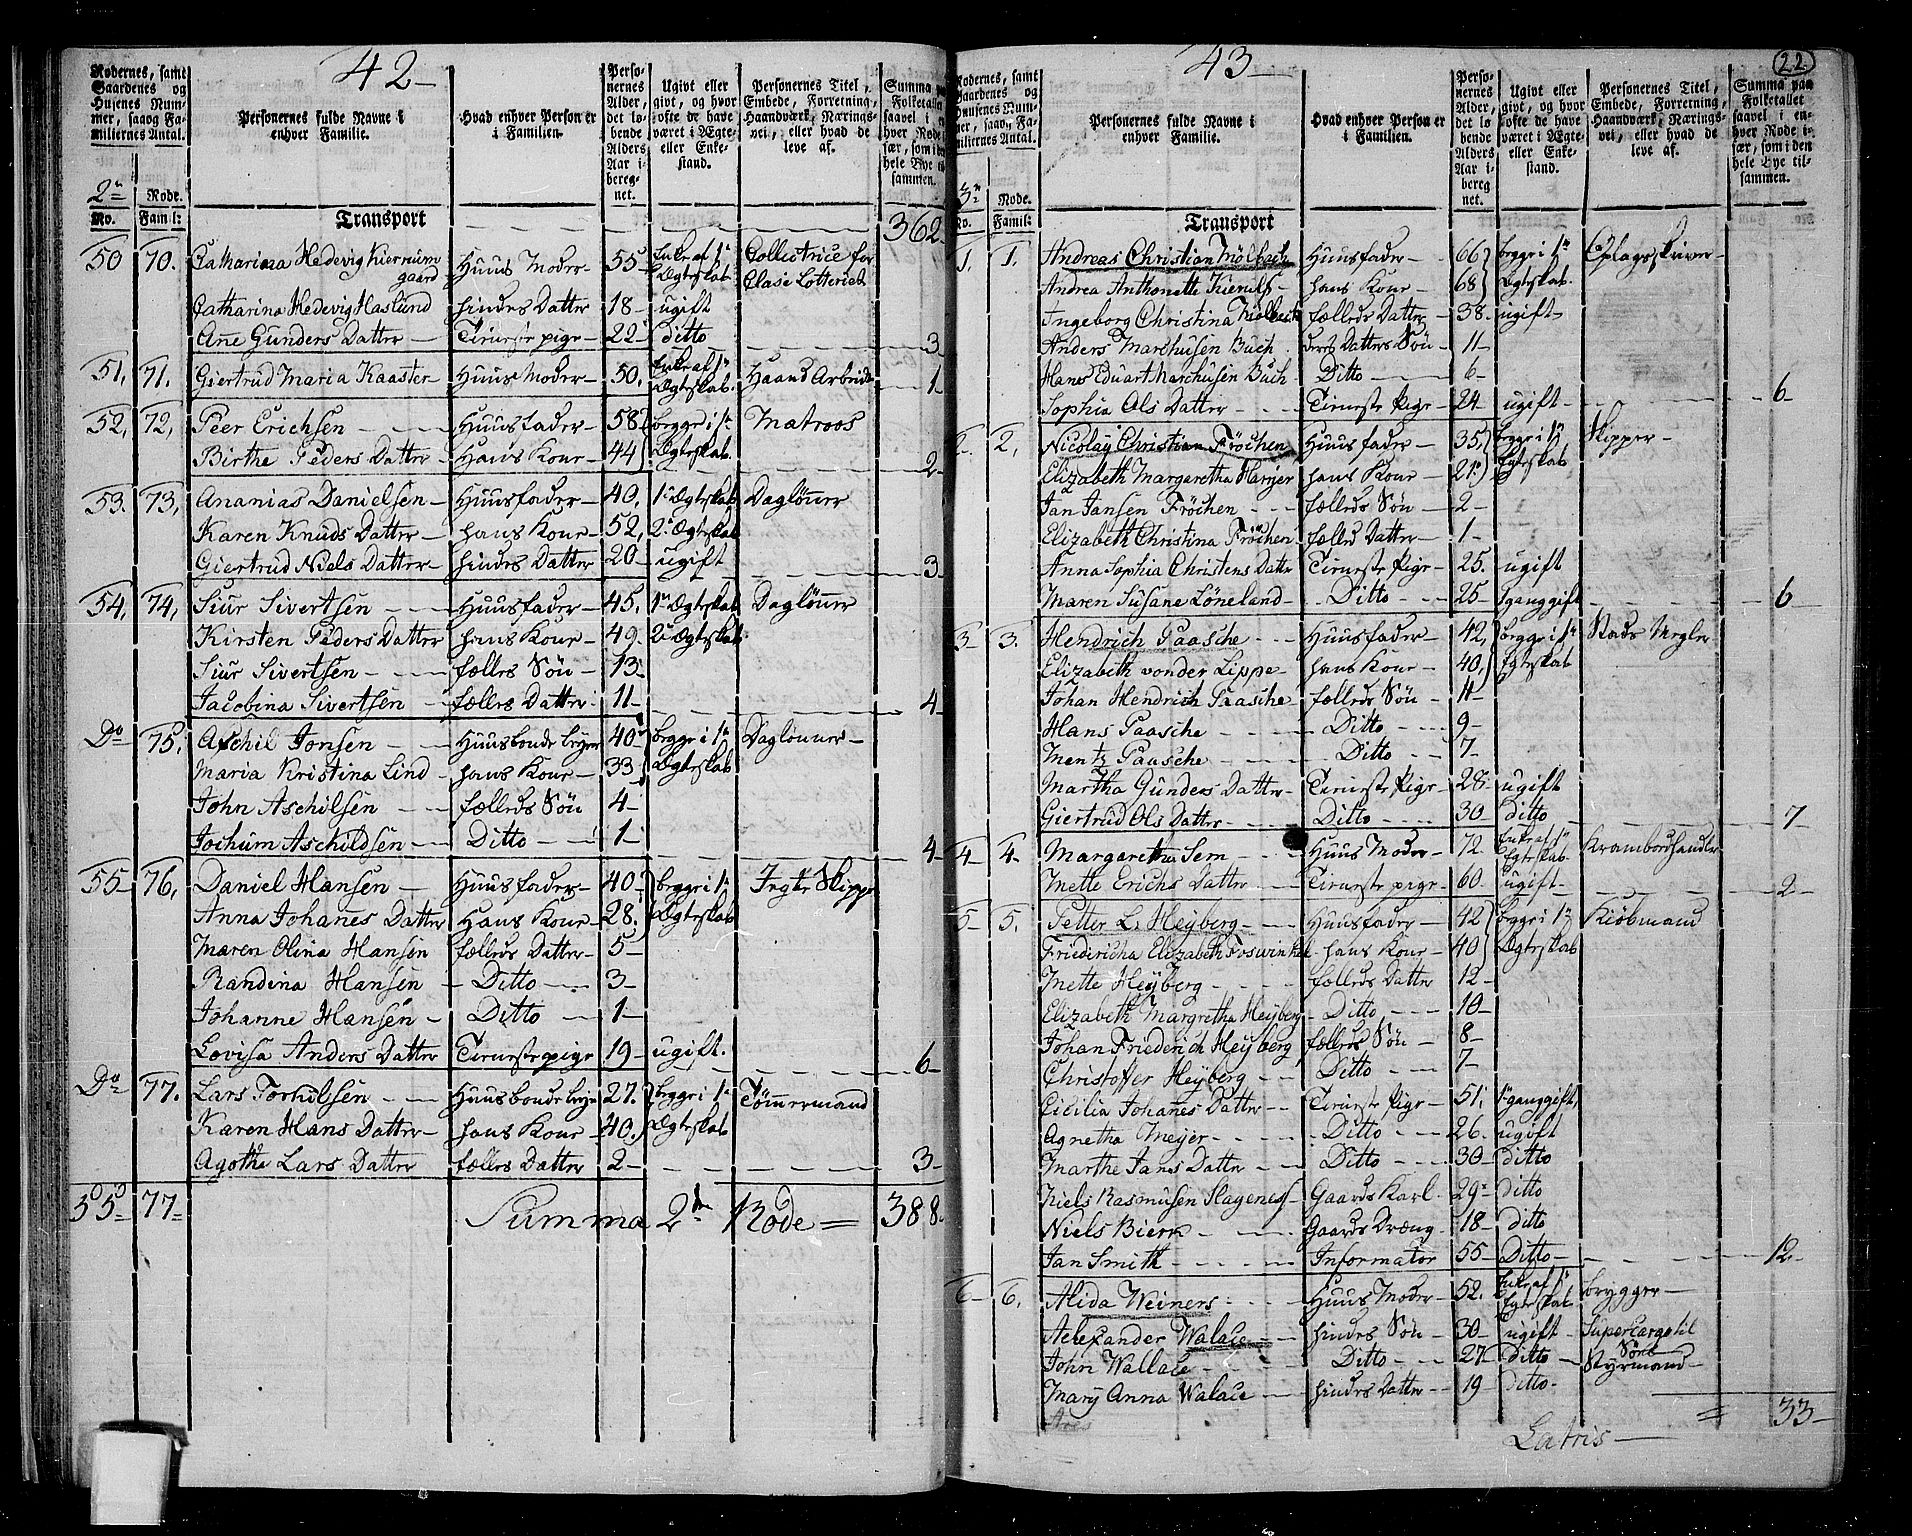 42-
Rodernes, samt Gaardenes og Husenes Nummer, saaog Familiernes Antal.
Personernes fulde Navne i enhver Familie.
Hvad enhver Person er i Familien.
Personernes Alder, det løbende Alders Aar iberegnet.
Ugivt eller givt, og hvor ofte de have været i Ægte- eller Enkestand.
Personernes Titel, Embede, Forretning, Haandværk, Næringsvei, eller hvad de leve af.
Summa paa Folketallet saavel i enhver Rode især, som i den hele Bye tilsammen.
2n Rode.
No. Famil:
Transport 362-
50 70. Catharina Hedevig Kierrumgaard Huus Moder- 55- Enke af 1te Ægteskab Collectrice for Clase Lotteriet
Catharina Hedevig Haslund hindes Datter 18- ugift
Ane Gunders Datter- Tieneste pige- 22- Ditto 3-
51, 71. Giertrud Maria Kaaster- Huus Moder- 50. Enke af 1te Ægteskab. Haand Arbeide 1-
52, 72, Peer Erichsen Huusfader- 58 begge i 1te Ægteskab Matroos
Birthe Peders Datter- Hans Kone- 44 2-
53. 73, Ananias Danielsen- Huusfader- 40, 1te Ægteskab Dagløner
Karen Knuds Datter- hans Kone- 52, 2t Ægteskab
Giertrud Niels Datter- hindes Datter 20- ugift 3-
54, 74, Siur Sivertsen Huusfader- 45, 1te Ægteskab Dagløner
Kirsten Peders Datter hans Kone- 49. 2t Ægteskab
Siur Sivertsen - fælles Søn- 13-
Jacobina Sivertsen fælles Datter- 11- 4-
Do 75, Aschil Jonsen Huusbonde leyer 40 begge i 1te Ægteskab Dagløner-
Maria Kristina Lind- hans Kone- 33
John Aschilsen fælleds Søn 4-
Jochum Aschildsen - Ditto 1- 4-
55- 76, Daniel Hansen - Huusfader- 40 begge i 1te Ægteskab Jegte Skipper
Anna Johanes Datter Hans Kone- 28.
Maren Olina Hansen fælleds Datter- 5-
Randina Hansen - Ditto 3-
Johanne Hansen - Ditto 1-
Lovisa Anders Datter Tienestepige 19- ugift. 6-
Do 77. Lars Torkilsen Huusbonde leye 27. begge i 1te Ægteskab Tømmermand
Karen Hans Datter- hans Kone- 40.
Agothe Lars Datter fælles Datter 2- 3-
55- 77- Summa 2den Rode = 388-
43-
22
Rodernes, samt Gaardenes og Husenes Nummer, saaog Familiernes Antal.
Personernes fulde Navne i enhver Familie.
Hvad enhver Person er i Familien.
Personernes Alder, det løbende Alders Aar iberegnet.
Ugivt eller givt, og hvor ofte de have været i Ægte- eller Enkestand.
Personernes Titel, Embede, Forretning, Haandværk, Næringsvei, eller hvad de leve af.
Summa paa Folketallet saavel i enhver Rode især, som i den hele Bye tilsammen.
3n Rode.
No. Famil:
Transport
1. 1. Andreas Christian Mölbach Huusfader 66 begge i 1te Ægteskab. Oplagsskriver-
Andrea Anthonette Kierulf- hans Kone- 68
Ingeborg Christina Mölbach fælleds Datter- 38. ugift-
Anders Marchusen Buch deres Datters Søn- 11-
Hans Eduart Marchusen Buch Ditto 6-
Sophia Ols Datter Tieneste Pige- 24 ugift- 6-
2. 2, Nicolay Christian Fröchen Huus fader- 35, begge i 1te Egteskab Skipper-
Elizabeth Margaretha Harmer hans Kone- 21.
Jan Jansen Fröchen fælleds Søn- 2-
Elizabeth Christina Fröchen fælled Datter- 1-
Anna Sophia Christens Datter Tieneste Pige- 25. ugift
Maren Susane Löneland- Ditto 25- 1 gang gift 6-
3- 3. Hendrich Paasche Huusfader- 42, begge i 1te Egteskab Stads Megler
Elizabeth vonder Lippe- hans Kone- 40,
Johan Hendrich Paasche fælleds Søn- 11-
Hans Paasche Ditto 9-
Mentz Paasche Ditto 7-
Martha Gunders Datter- Tieneste Pige- 28- ugift
Giertrud Ols Datter- Ditto 30 ditto 7-
4- 4- Margaretha Sem Huus Moder- 72 Enke af 1te Egteskab- Krambodhandler
Mette Erichs Datter Tieneste pige- 60. ugift- 2-
5- 5. Petter L. Heyberg- Huusfader 42 begge i 1te Ægteskab Kiöbmand
Friedericha Elizabeth Foswinkel- hans Kone- 40
Mette Heyberg fælleds Datter 12-
Elizabeth Margretha Heyberg- Ditto 10-
Johan Friederich Heyberg fælleds Søn- 8-
Christoffer Heyberg Ditto 7-
Cicilia Johanes Datter- Tieneste Pige- 51, 1 gang gift,
Agnetha Meyer Ditto 26. ugift
Marthe Jans Datter Ditto 30- ditto
Niels Rasmusen Slagenes- Gaards Karl- 29- ditto
Niels Bierk Gaards Dreng- 18- ditto
Jan Smith Informator 55- Ditto- 12-
6- 6. Alida Weiners Huus Moder- 52. Enke af 1te Egteskab brygger-
Alexander Walace hindes Søn- 30- ugift- Supercargo til Søes
John Wallace Ditto 27- ditto- Styrmand-
Mary Anna Walace hindes Datter- 19 ditto-
= 33-
Latris-